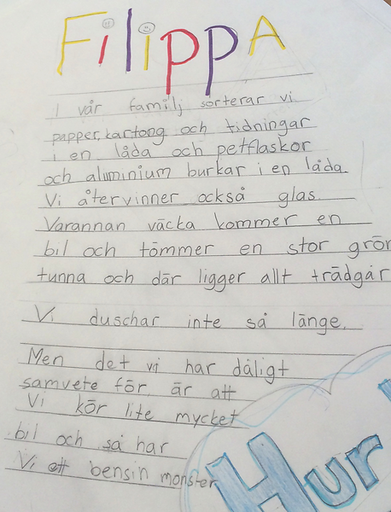 FilippA
I vår familj sorterar vi
papper, kartong och tidningar
i en låda och petflaskor
och aluminium burkar i en låda.
Vi återvinner också glas
Varannan väcka kommer en
bil och tömmer en stor grön
tunna och där ligger allt trädgår
Vi duschar inte så länge.
Men det vi har dåligt
samvete för är att
Vi kör lite mycket
bil och så har
Vi ett bensin monster
Hur